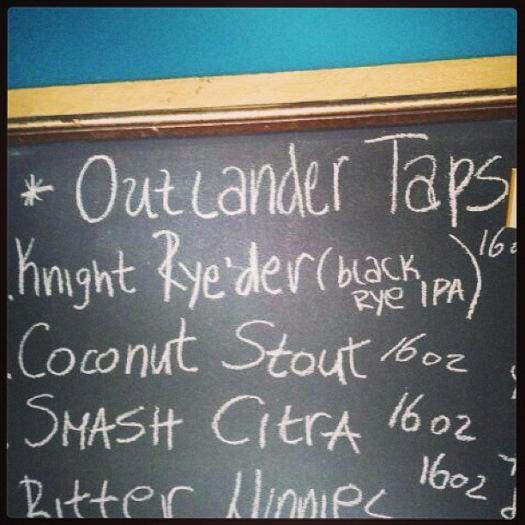 * Outlander Taps
.Knight Rye'der (black Rye IPA) 16o
.Coconut Stout 16oz
.SMASH CitrA 16oz
Bitter 16oz